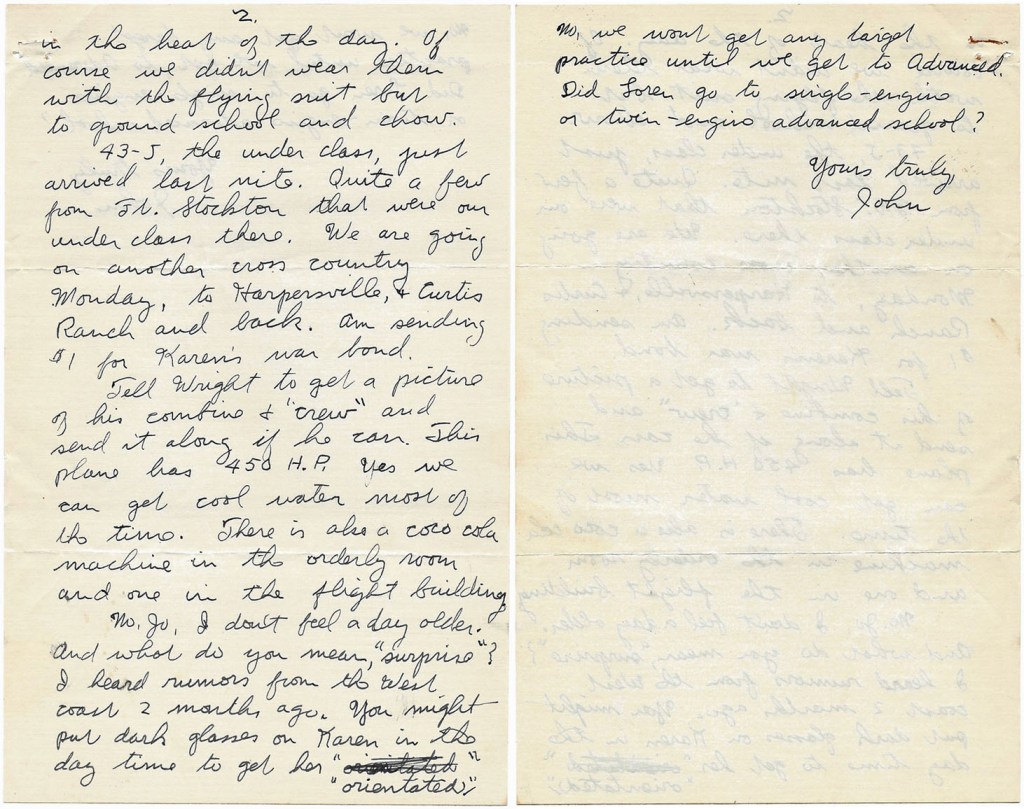 2.
in the heat of the day. Of
course we didn't wear them
with the flying suit but
to ground school and chow.
43-J, the under class, just
arrived last nite. Quite a few
from Ft. Stockton that were our
under class there. We are going
on another cross country
Monday, to Harpersville, & Curtis
Ranch and back. Am sending
$1 for Karen's war bond.
Tell Wright to get a picture
of his combine & "crew" and
send it along if he can. This
plane has 450 H.P. Yes we
can get cool water most of
the time. There is also a coco cola
machine in the orderly room
and one in the flight building.
No, Jo, I don't feel a day older.
And what do you mean, "surprise"?
I heard rumors from the West
coast 2 months ago. You might
put dark glasses on Karen in the
day time to get her "orientated"
"orientated."
No, we wont get any target
practice until we get to Advanced.
Did Loren go to single-engine
or twin-engine advanced school?
Yours truly,
John